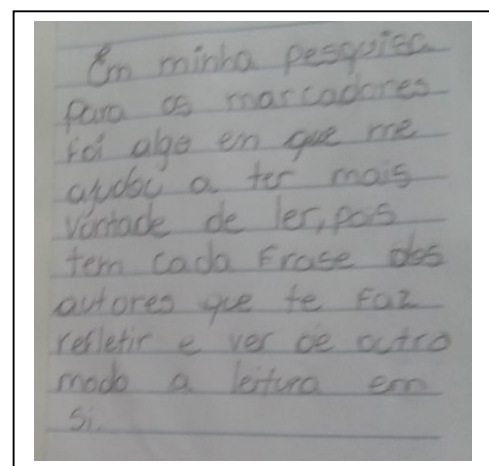 Em minha pesquisa
para os marcadores
foi algo em que me
ajudou a ter mais
vontade de ler, pois
tem cada frase dos
autores que te faz
refletir e ver de outro
modo a leitura em
si.